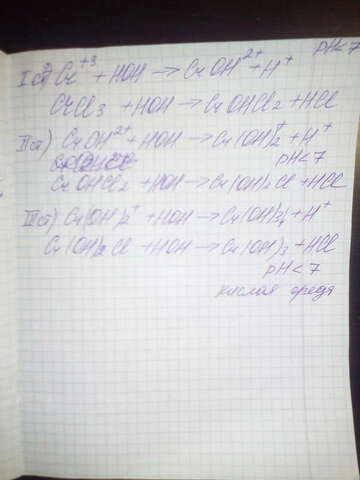 pH<7
I ст) Cr⁺³ + HOH → CrOH²⁺ + H⁺
CrCl₃ + HOH → CrOHCl₂ + HCl
II ст) CrOH²⁺ + HOH → Cr(OH)₂⁺ + H⁺
pH<7
CrOHCl₂ + HOH → Cr(OH)₂Cl + HCl
III ст) Cr(OH)₂⁺ + HOH → Cr(OH)₃↓ + H⁺
Cr(OH)₂Cl + HOH → Cr(OH)₃ + HCl
pH<7
кислая среда